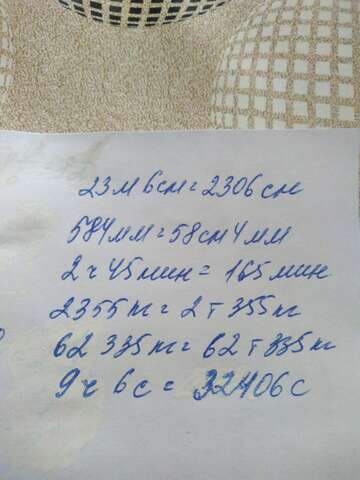 23м 6см = 2306 см
584мм = 58см 4мм
2ч 45мин = 165 мин
2355кг = 2т 355кг
62 335кг = 62т 335кг
9ч 6с = 32406с